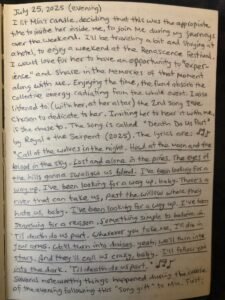 July 25, 2025 (evening)
I lit Mini's candle, deciding that this was the appropriate
time to invite her inside me, to join me during my journeys
over the weekend. I'll be traveling a bit and staying at
a hotel, to enjoy a weekend at the Renaissance Festival.
I would love for her to have an opportunity to "experi-
ence" and share in the memories of that moment
along with me. Enjoying the time, the fun and the
collective energy radiating from the whole event. I also
listened to (with her, at her altar) the 2nd song I've
chosen to dedicate to her. Inviting her to hear it with me,
if she chose to. The song is called "Death Do Us Part"
by Royal & the Serpent (2025). The lyrics are:
"Call of the wolves in the night. Howl at the moon and the
blood in the sky. Lost and alone in the pines. The eyes of
the hills gonna swallow us blind. I've been looking for a
way up. I've been looking for a way up. There's a
river that can take us, past the willow where they
hate us, baby. I've been looking for a way up. I've been
searching for a reason. Something simple to believe in.
Til death do us part. Wherever you take me, I'll die in
your arms. We'll turn into daisies, yeah we'll turn into
stars. And they'll call us crazy, baby. I'll follow you
into the dark. 'Til death do us part."
Several noteworthy things happened during the course
of the evening following this "song gift" to Mini. First,